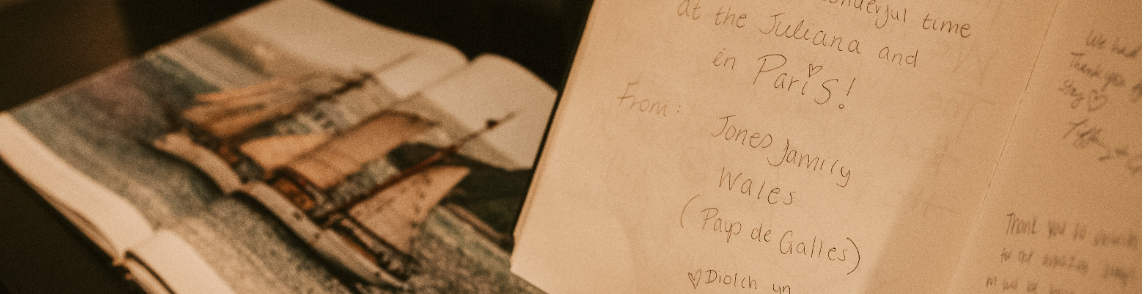 wonderful time
at the Juliana and
in Paris!
From:
Jones family
Wales
(Pays de Galles)
Diolch yn
We had
Thank you
Stay
Thank you so
for the amazing